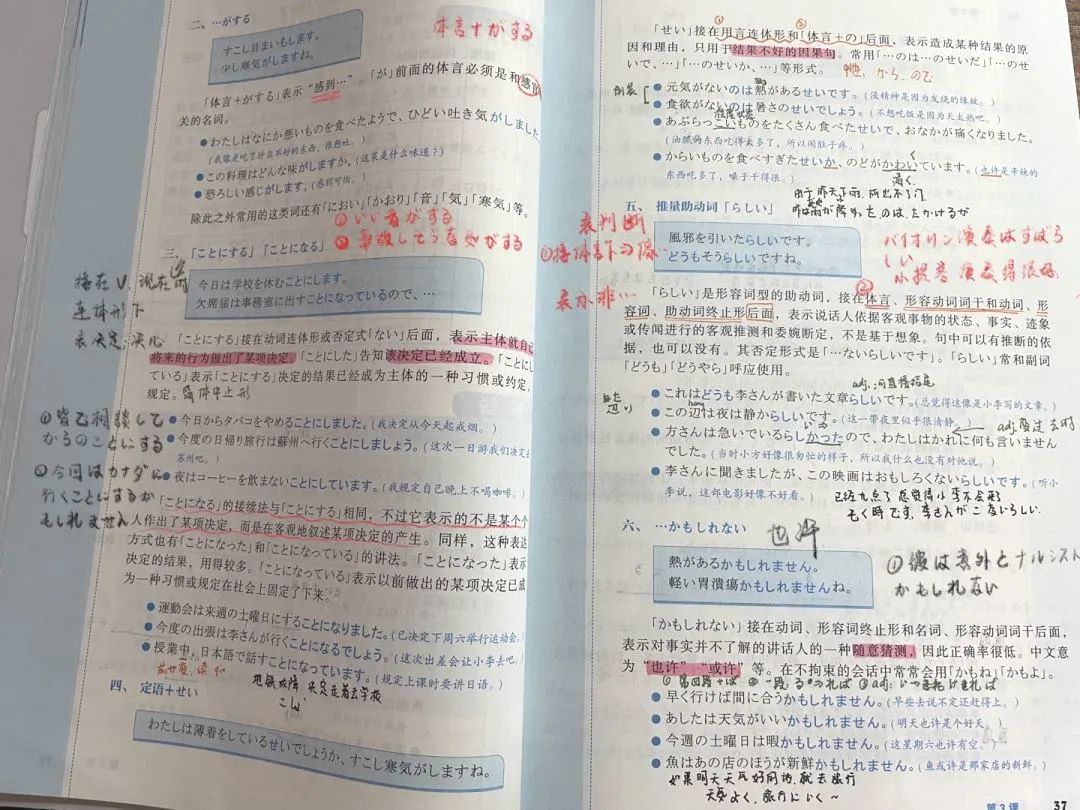 二、…がする
体言+がする
すこし目まいもします。
少し寒気がしますね。
「体言+がする」表示“感到…”。「が」前面的体言必须是和感官
关的名词。
● わたしはなにか悪いものを食べたようで、ひどい吐き気がしました
(我像是吃了什么不好的东西，很想吐。)
● この料理はどんな味がしますか。(这菜是什么味道？)
● 恐ろしい感じがします。(感到可怕。)
除此之外常用的这类词还有「におい」「かおり」「音」「気」「寒気」等。
① いい音がする
三、「ことにする」「ことになる」
今日は学校を休むことにします。
欠席届は事務室に出すことになっているので、…
接在V.现在时
连体形下
表决定,决心
「ことにする」接在动词连体形或否定式「ない」后面，表示主体就自己
将来的行为做出了某项决定。「ことにした」告知该决定已经成立。「ことにし
ている」表示「ことにする」决定的结果已经成为主体的一种习惯或约定、
规定。
● 今日からタバコをやめることにしました。(我决定从今天起戒烟。)
● 今度の日帰り旅行は蘇州へ行くことにしましょう。(这次一日游我们决定去
苏州吧。)
● 夜はコーヒーを飲まないことにしています。(我规定自己晚上不喝咖啡。)
② 今回はカナダに
行くことにするか
もしれません
「ことになる」的接续法与「ことにする」相同，不过它表示的不是某个个
人作出了某项决定，而是在客观地叙述某项决定的产生。同样，这种表达
方式也有「ことになった」和「ことになっている」的讲法。「ことになった」表示
决定的结果，用得较多。「ことになっている」表示以前做出的某项决定已成
为一种习惯或规定在社会上固定了下来。
● 運動会は来週の土曜日にすることになりました。(已决定下周六举行运动会。)
● 今度の出張は李さんが行くことになるでしょう。(这次出差会让小李去吧。)
● 授業中、日本語で話すことになっています。(规定上课时要讲日语。)
四、定语+せい
わたしは薄着をしているせいでしょうか、すこし寒気がしますね。
「せい」接在用言连体形和「体言+の」后面，表示造成某种结果的原
因和理由，只用于结果不好的因果句。常用「…のは…のせいだ」「…のせ
いで、…」「…のせいか、…」等形式。
から、ので
倒装
● 元気がないのは熱があるせいです。(没精神是因为发烧的缘故。)
● 食欲がないのは暑さのせいでしょう。(不想吃饭是因为天太热吧。)
● あぶらっこいものをたくさん食べたせいで、おなかが痛くなりました。
(油腻的东西吃得太多了，所以闹肚子疼。)
● からいものを食べすぎたせいか、のどがかわいています。(也许是辛辣的
东西吃多了，嗓子干得很。)
五、推量助动词「らしい」
表判断
風邪を引いたらしいです。
どうもそうらしいですね。
バイオリン演奏はすばら
しい
小提琴演奏得很好
「らしい」是形容词型的助动词，接在体言、形容动词词干和动词、形
容词、助动词终止形后面，表示说话人依据客观事物的状态、事实、迹象
或传闻进行的客观推测和委婉断定，不是基于想象。句中可以有推断的依
据，也可以没有。其否定形式是「…ないらしいです」。「らしい」常和副词
「どうも」「どうやら」呼应使用。
● これはどうも李さんが書いた文章らしいです。(总觉得这像是小李写的文章。)
● この辺は夜は静からしいです。(这一带夜里似乎很清静。)
● 方さんは急いでいるらしかったので、わたしはかれに何も言いません
でした。(当时小方好像很匆忙的样子，所以我什么也没有对他说。)
● 李さんに聞きましたが、この映画はおもしろくないらしいです。(听小
李说，这部电影好像不好看。)
六、…かもしれない
也许
熱があるかもしれません。
軽い胃潰瘍かもしれませんね。
① 彼は意外とナルシスト
かもしれない
「かもしれない」接在动词、形容词终止形和名词、形容动词词干后面，
表示对事实并不了解的讲话人的一种随意猜测，因此正确率很低。中文意
为“也许”“或许”等。在不拘束的会话中常常会用「かもね」「かもよ」。
● 早く行けば間に合うかもしれません。(早些去说不定还赶得上。)
● あしたは天気がいいかもしれません。(明天也许是个好天。)
● 今週の土曜日は暇かもしれません。(这星期六也许有空。)
● 魚はあの店のほうが新鮮かもしれません。(鱼或许是那家店的新鲜。)
如果明天天气好的话,就去旅行
第3课 37